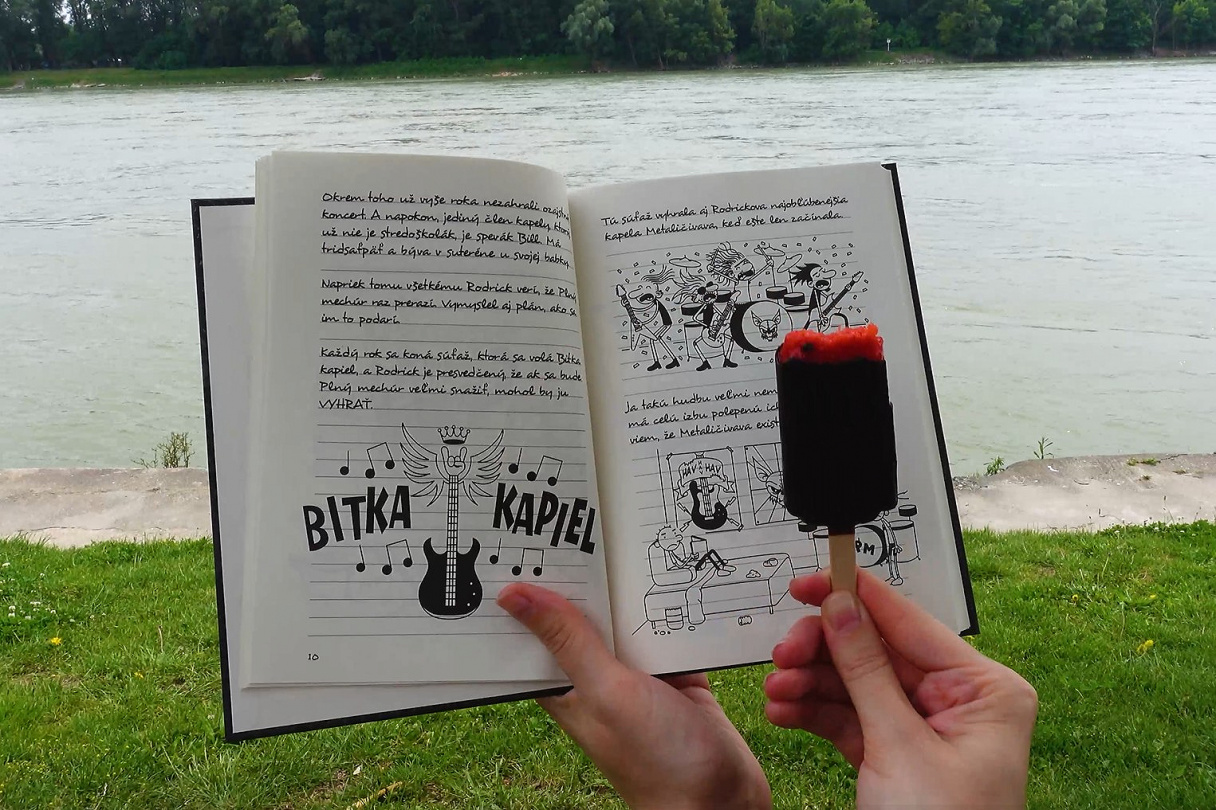 Okrem toho už vyše roka nezahrali
koncert. A napokon, jediný člen kapely,
už nie je stredoškolák, je spevák Bill. Má
tridsaťpäť a býva v suteréne u svojej babky.
Napriek tomu všetkému Rodrick verí, že Plný
mechúr raz prerazí. Vymyslel aj plán, ako sa
im to podarí.
Každý rok sa koná súťaž, ktorá sa volá Bitka
kapiel, a Rodrick je presvedčený, že ak sa bude
Plný mechúr veľmi snažiť, mohol by ju
VYHRAŤ.
BITKA KAPIEL
10
Tú súťaž vyhrala aj Rodrickova najobľúbenejšia
kapela Metaličivava, keď ešte len začínala.
Ja takú hudbu veľmi
má celú izbu polepenú
viem, že Metaličivava
HAV HAV
PM